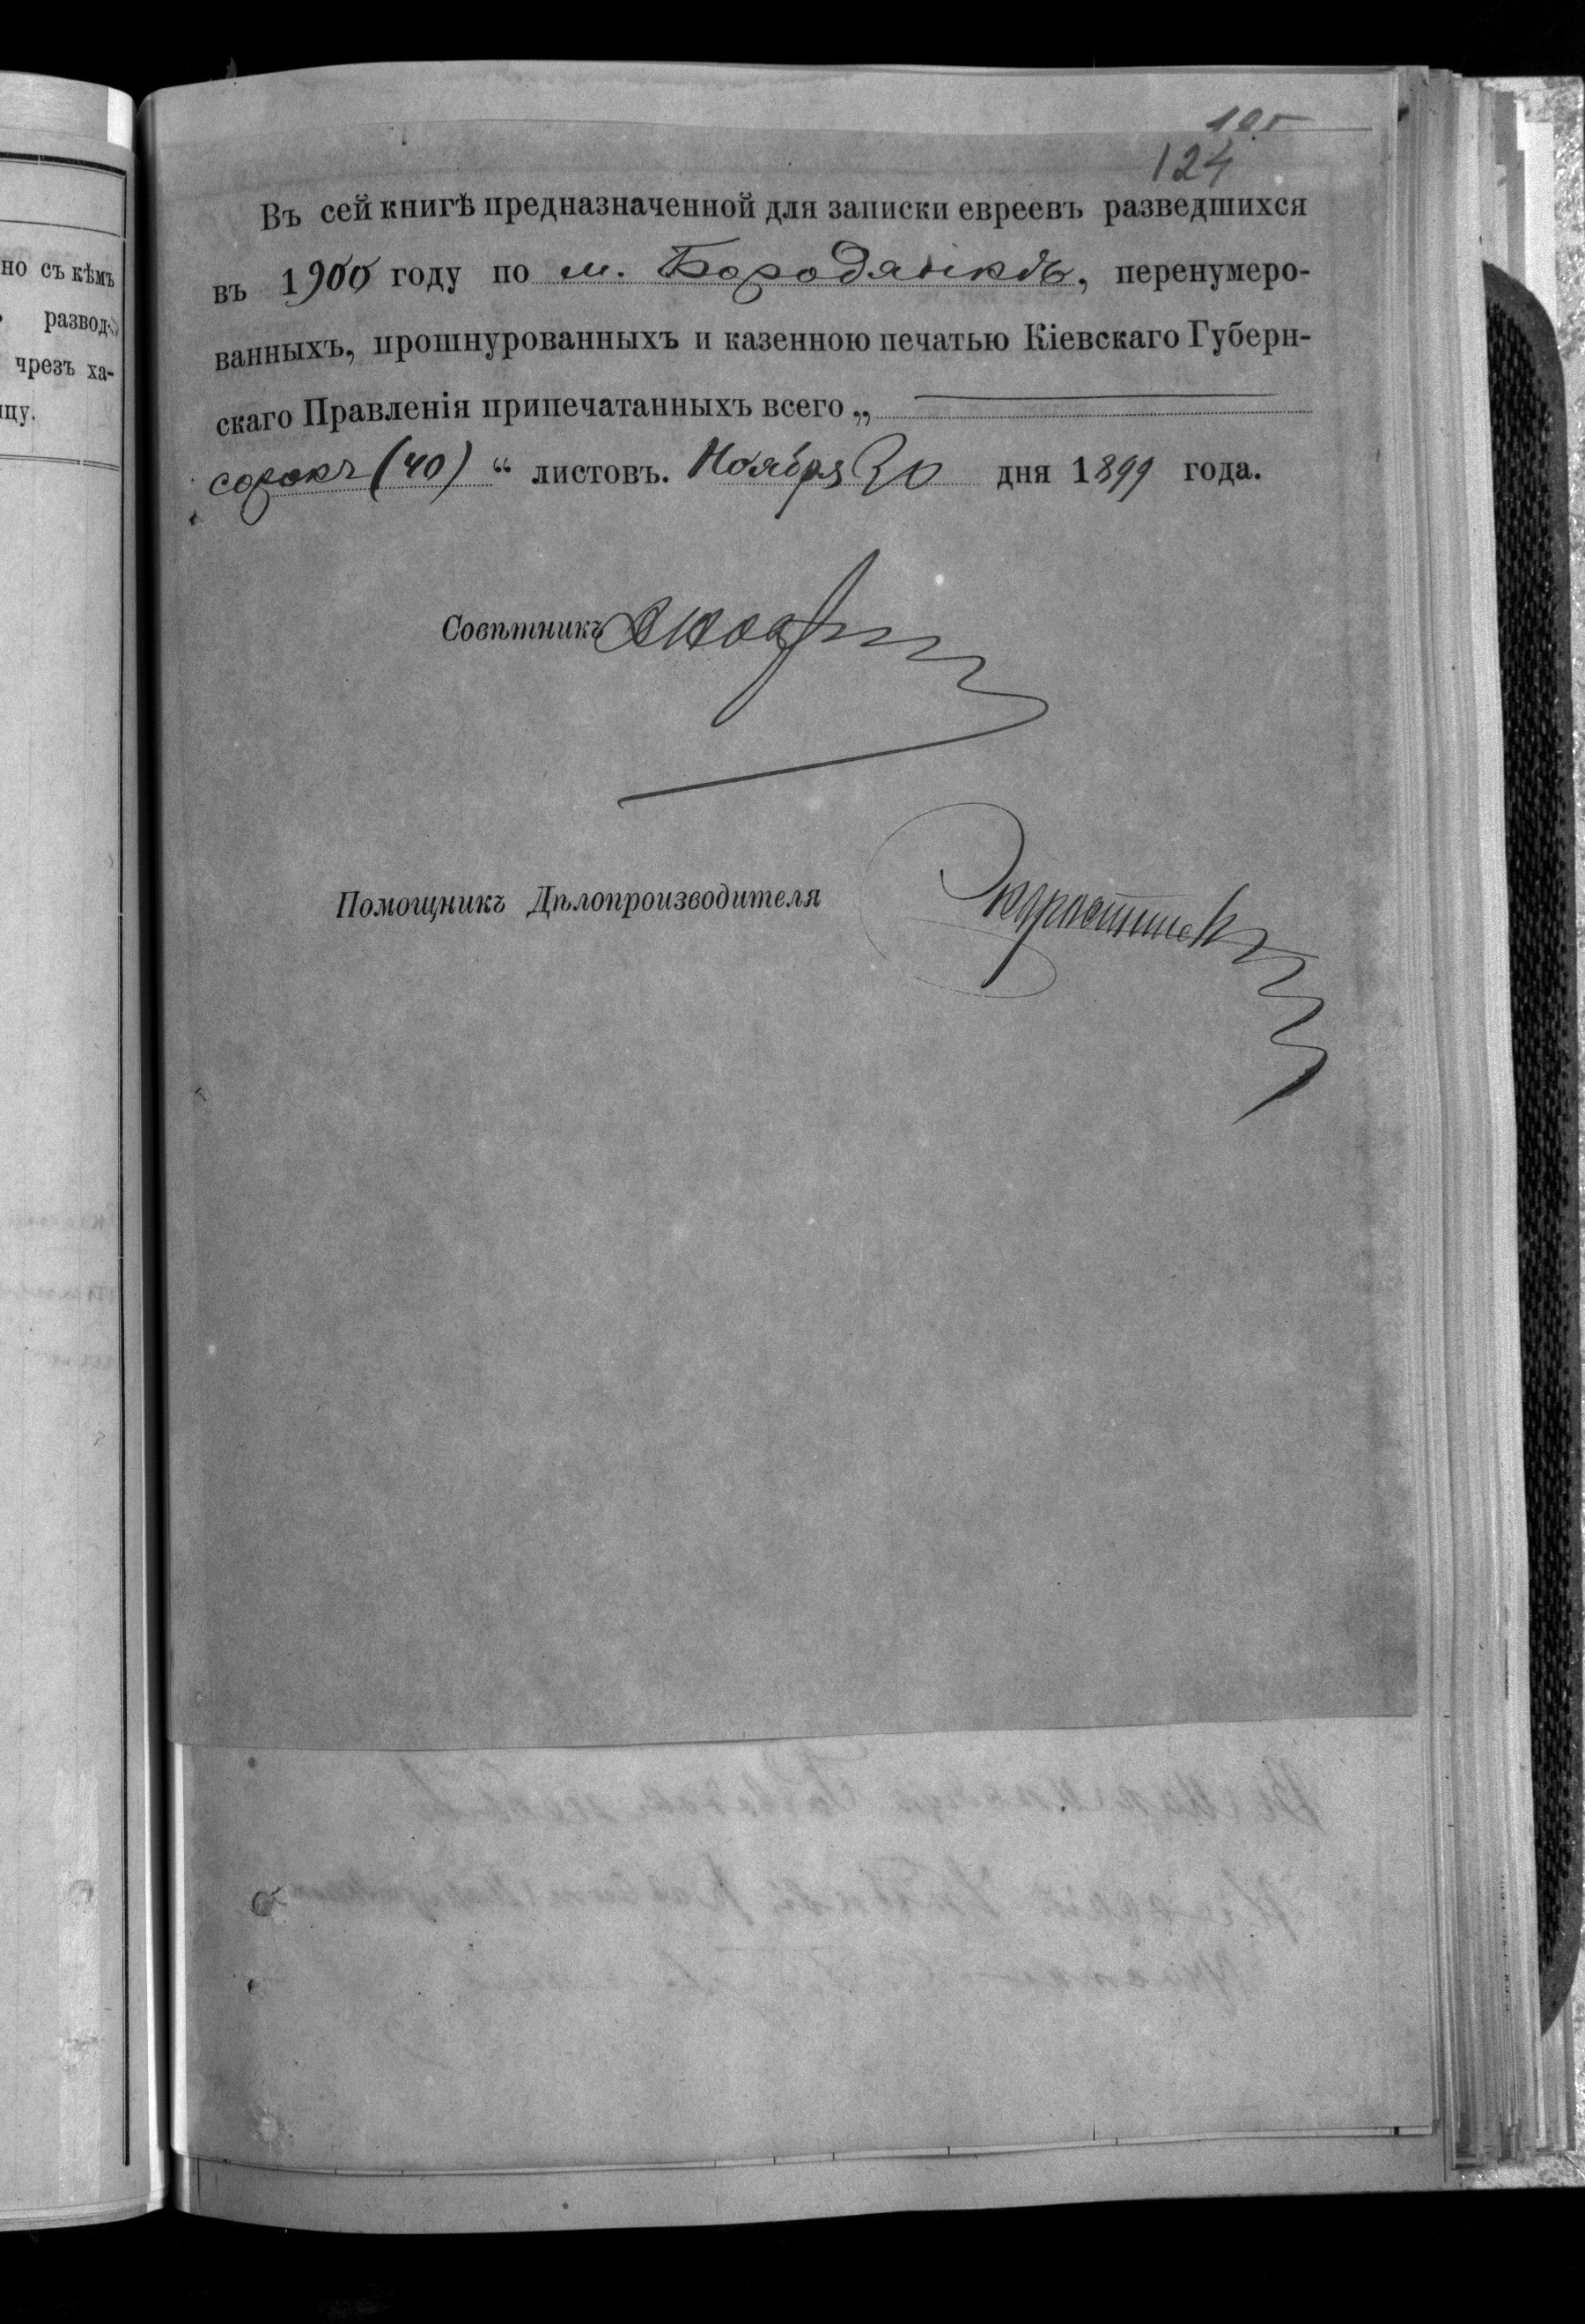 но съ кѣмъ
развод-
чрезъ ха-
цу.
124
Въ сей книгѣ предназначенной для записки евреевъ разведшихся
въ 1900 году по м. Бородянкѣ, перенумеро-
ванныхъ, прошнурованныхъ и казенною печатью Кіевскаго Губерн-
скаго Правленія припечатанныхъ всего „
сорокъ (40) “ листовъ. Ноября 30 дня 1899 года.
Совѣтникъ
Помощникъ Дѣлопроизводителя